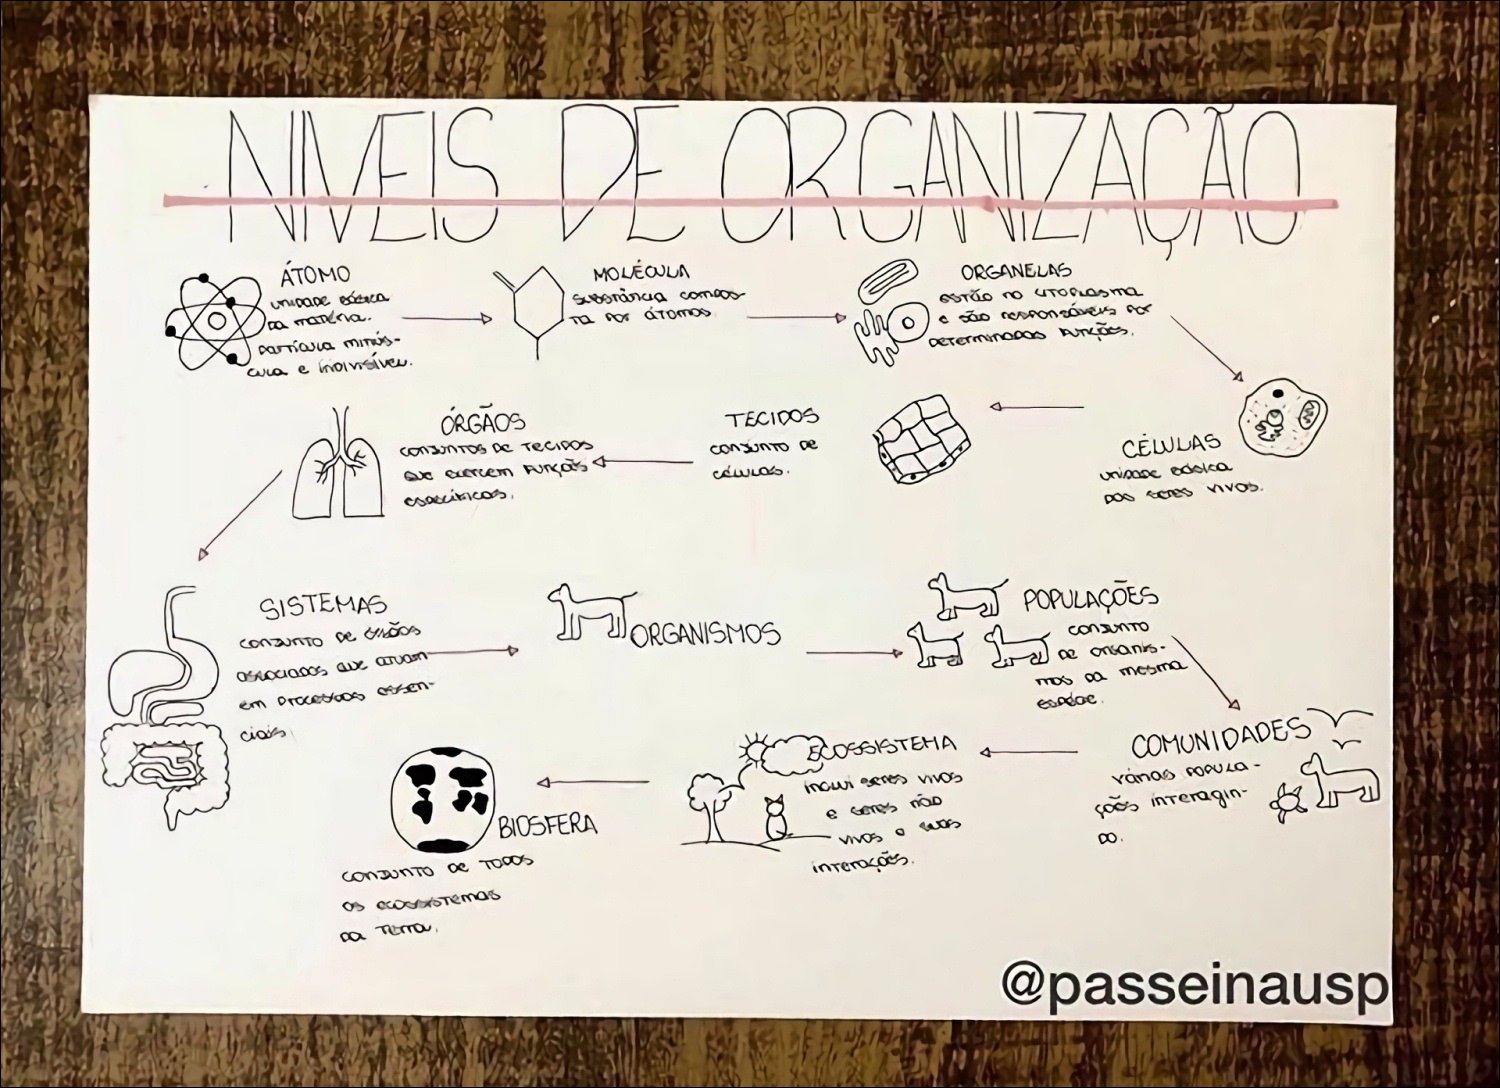 NIVEIS DE ORGANIZAÇÃO
ÁTOMO
unidade básica
da matéria.
partícula minús-
cula e indivisível.
MOLÉCULA
substância compos-
ta por átomos.
ORGANELAS
estão no citoplasma
e são responsáveis por
determinadas funções.
CÉLULAS
unidade básica
dos seres vivos.
TECIDOS
conjunto de
células.
ÓRGÃOS
conjuntos de tecidos
que exercem funções
específicas.
SISTEMAS
conjunto de órgãos
associados que atuam
em processos essen-
ciais
ORGANISMOS
POPULAÇÕES
conjunto
de organis-
mos da mesma
espécie.
COMUNIDADES
várias popula-
ções interagin-
do.
ECOSSISTEMA
inclui seres vivos
e seres não
vivos e suas
interações.
BIOSFERA
conjunto de todos
os ecossistemas
da terra.
@passeinausp